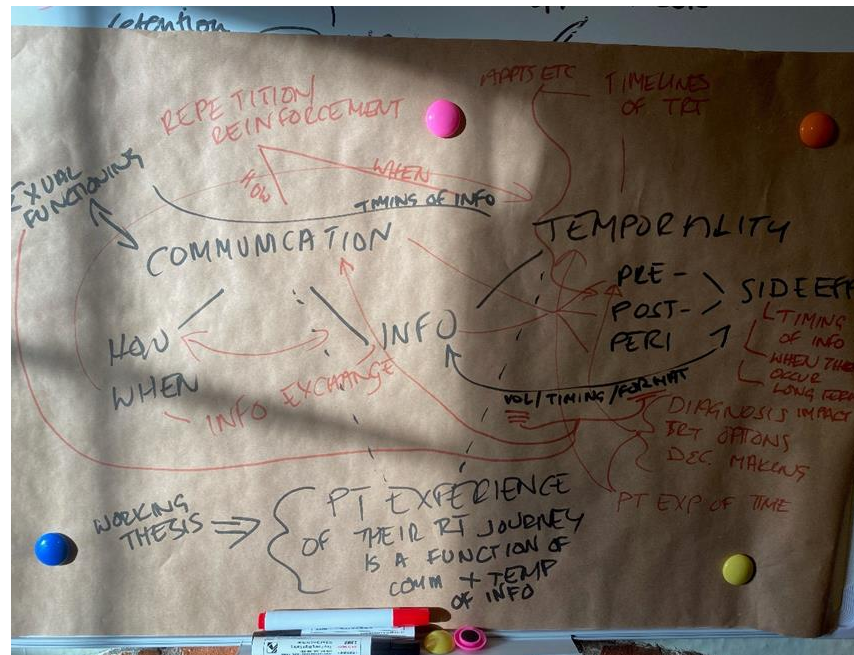 REPETITION/
REINFORCEMENT
APPTS ETC
TIMELINES
OF TRT
HOW
WHEN
TIMING OF INFO
EXUAL
FUNCTIONING
COMMUNICATION
TEMPORALITY
PRE -
POST -
PERI
SIDE EFF
TIMING
OF INFO
WHEN THE
OCCUR
LONG TERM
HOW
WHEN
INFO
INFO EXCHANGE
VOL/TIMING/FORMAT
DIAGNOSIS IMPACT
TRT OPTIONS
DEC. MAKING
PT EXP OF TIME
WORKING
THESIS
PT EXPERIENCE
OF THEIR RT JOURNEY
IS A FUNCTION OF
COMM + TEMP
OF INFO